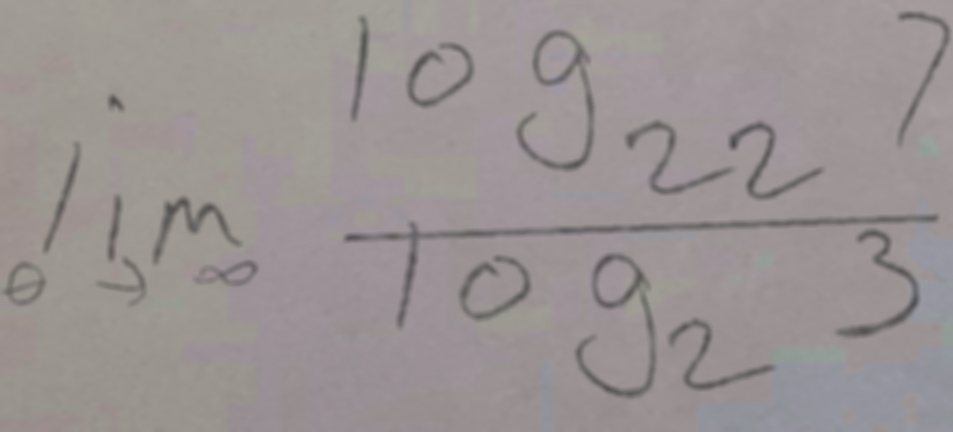 \lim_{\theta \to \infty} \frac{\log_{22} 7}{\log_{2} 3}